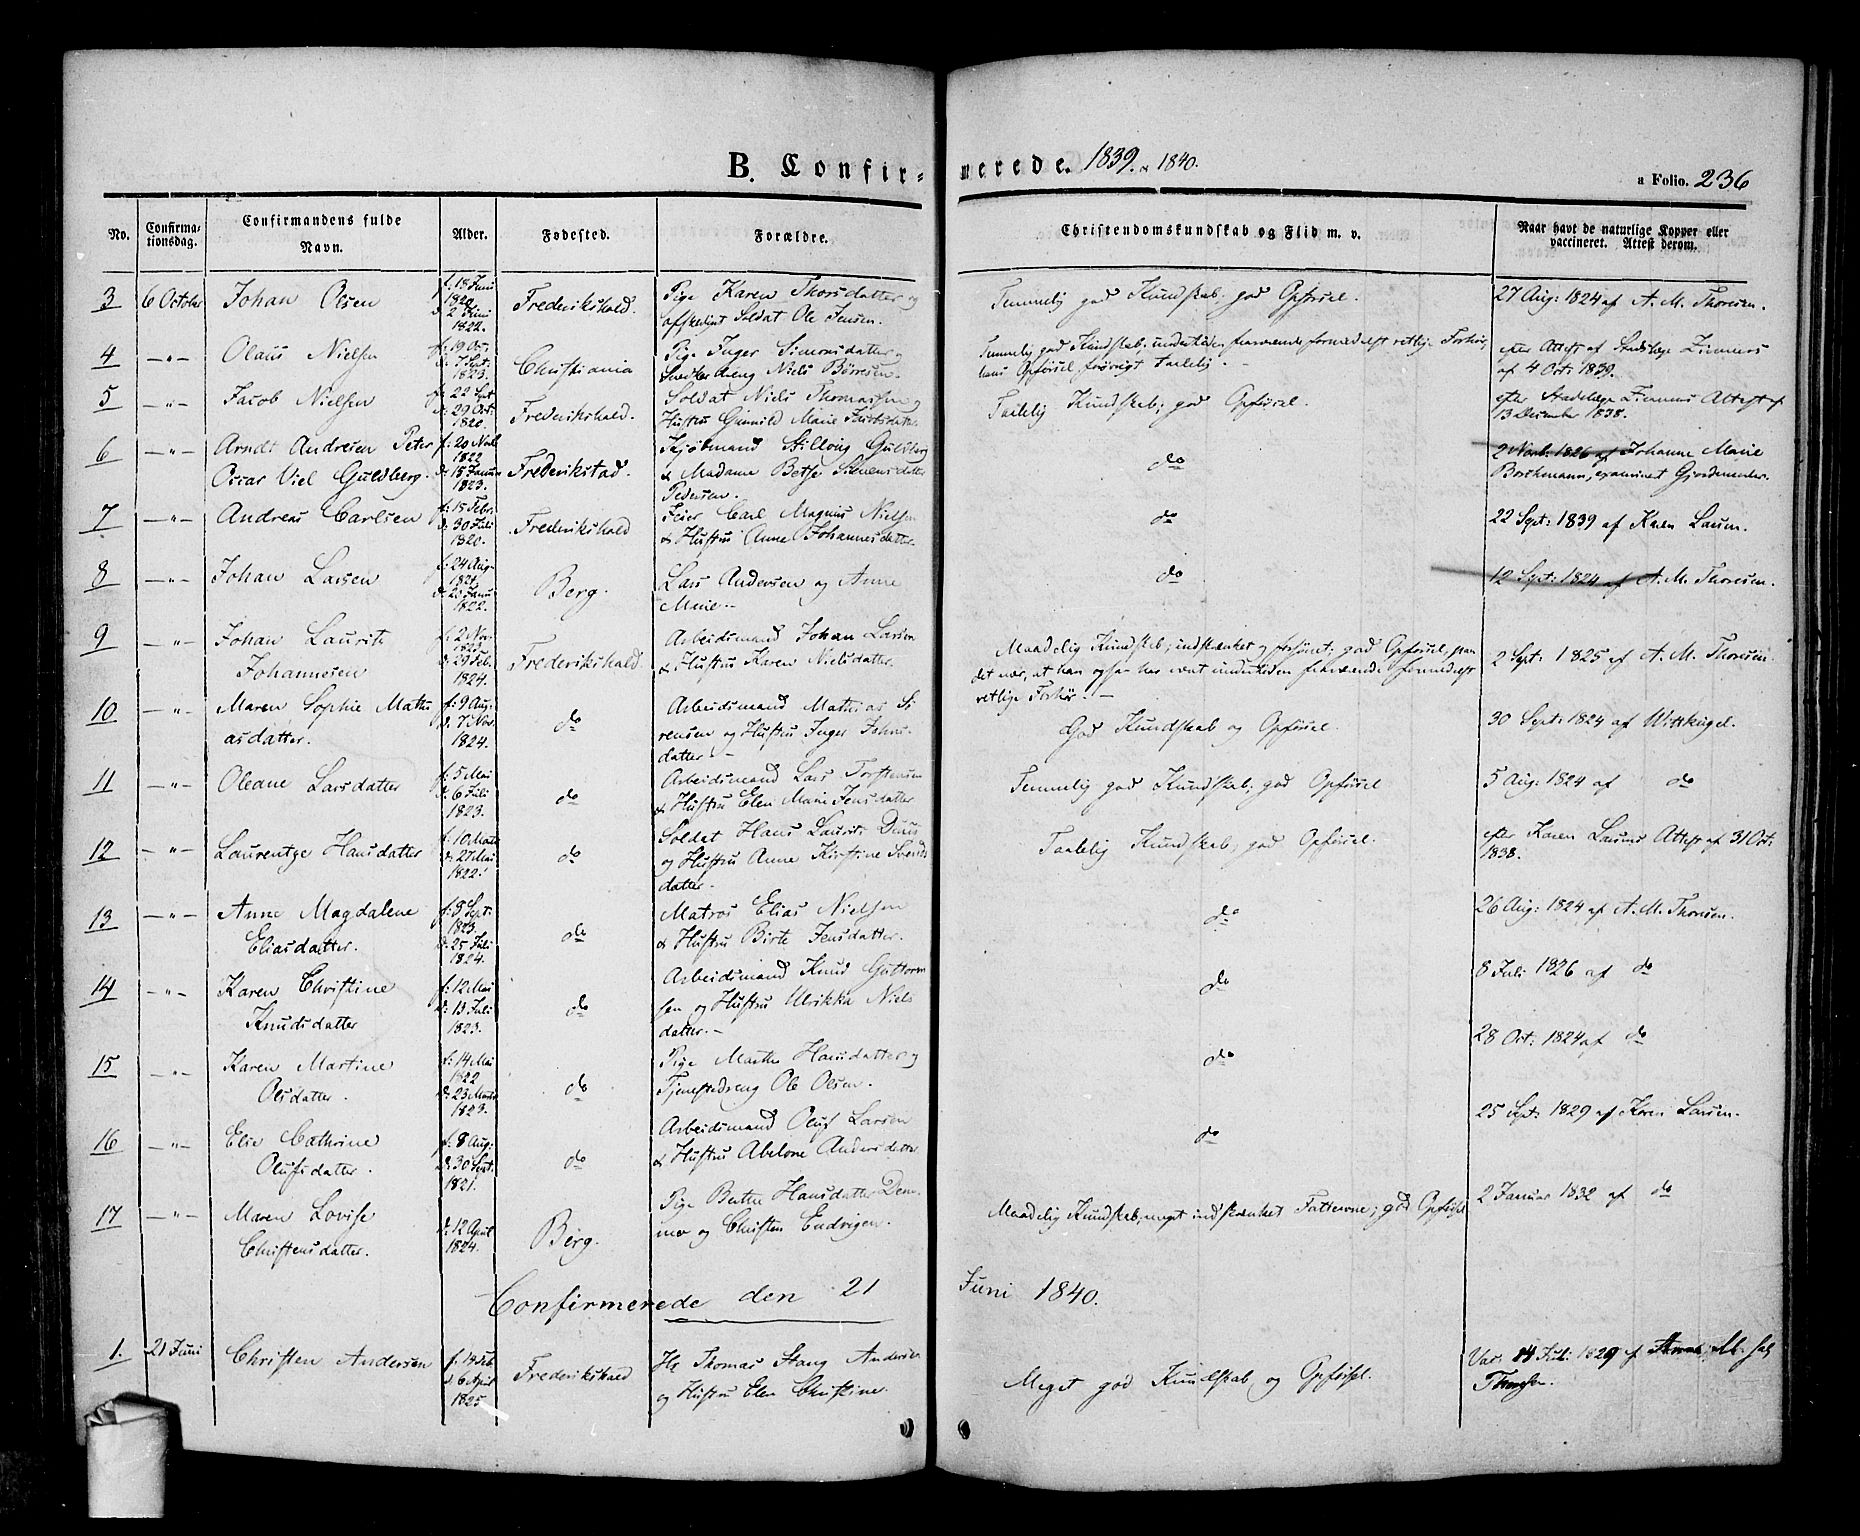 B. Confir-
merede. 1839. & 1840.
a Folio. 236
No.
Confirma-
tionsdag.
Confirmandens fulde
Navn.
Alder.
Fødested.
Forældre.
Christendomskundskab og Flid m. v.
Naar havt de naturlige Kopper eller
vaccineret. Attest derom.
3 6 October Johan Olsen f: 18 Juni 1820. d: 2 1822. Frederikshald. Pige Karen Thorsdatter og
afskediget Soldat Ole Jensen.
Temmelig god Kundskab; god Opførsel.
27 Aug: 1824 af A. M. Thoresen.
4 —〃— Olaus Nielsen f: 19 d: 7 Sept: 1823. Christiania Pige Inger Simonsdatter og
Niels Børresen.
Temmelig god Kundskab, undertiden fraværende formedelst retlige Forhør,
hans Opførsel forøvrigt taalelig.
efter Attest af Stadslæge Zimmers
af 4 Oct: 1839.
5 —〃— Jacob Nielsen f: 22 Sept d: 29 Oct: 1820. Frederikshald. Soldat Niels Thomassen og
Hustru Gunnild Marie
Taalelig Kundskab; god Opførsel.
efter Stadslæge Zimmers Attest af
13 December 1838.
6 —〃— Arndt Andresen Peter
Oscar Viel Guldberg. f: 20 Novb. 1822 d: 15 Januar 1823. Frederikstad. Kjøbmand Guldberg
& Madame Betsy
Pedersen.
do
2 Novb: 1826 af Johanne Marie
Borchmann, examineret Gjordemoder.
7 —〃— Andreas Carlsen f: 15 Febr: d: 30 Juli 1820. Frederikshald Feier Carl Magnus Nielsen
& Hustru Anne Johannesdatter.
do
22 Sept: 1839 af Karen Larsen.
8 —〃— Johan Larsen f: 24 Aug: 1821 d: 20 Janu: 1822. Berg. Lars Andersen og Anne
Marie.—
do
12 Sept: 1824 af A. M. Thoresen.
9 —〃— Johan Laurits
Johannesen f: 2 Nov: 1823 d: 29 Feb. 1824. Frederikshald. Arbeidsmand Johan Larsen
& Hustru Karen Nielsdatter.
Maadelig Kundskab; indskrænket og forsømt; god Opførsel, paa
det nær, at han ogsaa har været undertiden fraværende formedelst
retlige Forhør.—
2 Sept: 1825 af A. M. Thoresen.
10 —〃— Maren Sophie Mathi
asdatter. f: 9 Aug: d: 7 Nov: 1824. do Arbeidsmand Mathias Sö
rensen og Hustru Inger Johns
datter.—
God Kundskab og Opførsel.
30 Sept: 1824 af Wittkugel.
11 —〃— Oleane Larsdatter f: 5 Mai d: 6 Juli 1823. do Arbeidsmand Lars Torstensen
& Hustru Elen Marie Jensdatter
Temmelig god Kundskab; god Opførsel
5 Aug: 1824 af do
12 —〃— Laurentze Hansdatter f: 10 Marts d: 27 Mai 1822. do Soldat Hans Laurits
og Hustru Anne Kirstine Svends
datter.
Taalelig Kundskab; god Opførsel.
efter Karen Larsens Attest af 31 Oct:
1838.
13 —〃— Anne Magdalene
Eliasdatter. f: 8 Sept: 1823. d: 25 Juli 1824. do Matros Elias Nielsen
& Hustru Birte Jensdatter.
do
26 Aug: 1824 af A. M. Thoresen.
14 —〃— Karen Christine
Knudsdatter f: 12 Mai d: 13 Juli 1823. do Arbeidsmand Knud Guttorm
sen og Hustru Ulrikka Niels
datter.—
do
8 Juli 1826 af do
15 —〃— Karen Martine
Olsdatter. f: 14 Mai 1822 d: 23 Marts 1823. do Pige Marthe Hansdatter og
Tjenestedreng Ole Olsen.
do
28 Oct: 1824 af do
16 —〃— Elie Cathrine
Olufsdatter. f: 8 Aug: d: 30 Sept. 1821. do Arbeidsmand Oluf Larsen
& Hustru Abelone Andersdatter.
do
25 Sept: 1829 af Karen Larsen.
17 —〃— Maren Lovise
Christensdatter. d: 12 April 1824. Berg. Pige Berthe Hansdatter
og Christen
Maadelig Kundskab, meget indskrænket Fatteevne; god Opførsel
2 Januar 1832 af do
Confirmerede den 21
Juni 1840.
1. 21 Juni Christen Andersen f: 14 Feb d: 6 April 1825 Frederikshald Hr Thomas Stang Andersen
og Hustru Elen Christine.
Meget god Kundskab og Opførsel.
Vac: 14 Juli: 1829 af M.